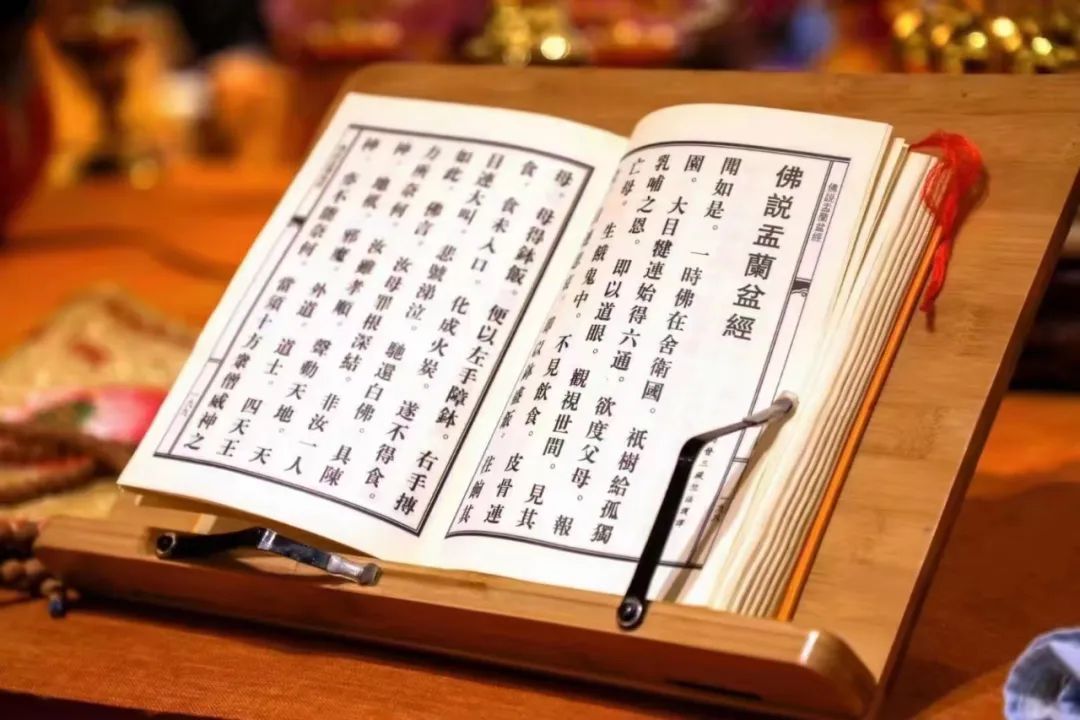 佛說盂蘭盆經
佛說盂蘭盆經
晉三藏竺法護譯
聞如是。一時佛在舍衛國。祇樹給孤獨
園。大目犍連始得六通。欲度父母。報
乳哺之恩。即以道眼。觀視世間。見其
亡母。生餓鬼中。不見飲食。皮骨連
以鉢盛飯。往餉其
母。母得鉢飯。便以左手障鉢。右手摶
食。食未入口。化成火炭。遂不得食。
目連大叫。悲號涕泣。馳還白佛。具陳
如此。佛言。汝母罪根深結。非汝一人
力所奈何。汝雖孝順。聲動天地。天
神。地祇。邪魔。外道。道士。四天王
神。亦不能奈何。當須十方眾僧威神之